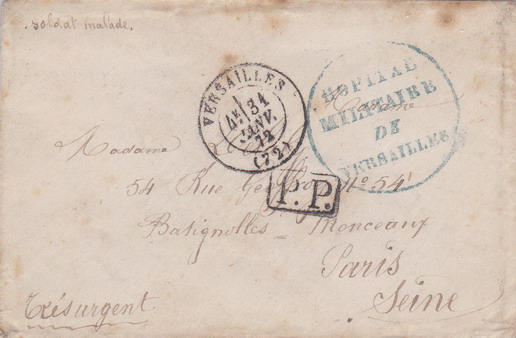 soldat malade.
VERSAILLES
4E/ 31
JANV.
72
(72)
HOPITAL
MILITAIRE
DE
VERSAILLES
Madame
Madame
54 Rue No 54
P.P.
Batignolles - Monceaux
Paris
Seine
Très urgent